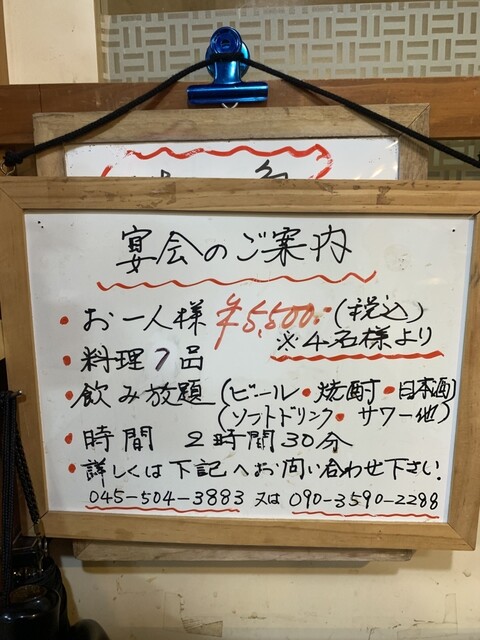 宴会のご案内
・お一人様 ¥5,500.-(税込)
※4名様より
・料理7品
・飲み放題(ビール・焼酎・日本酒)
(ソフトドリンク・サワー他)
・時間 2時間30分
・詳しくは下記へお問い合わせ下さい.
045-504-3883 又は 090-3590-2288